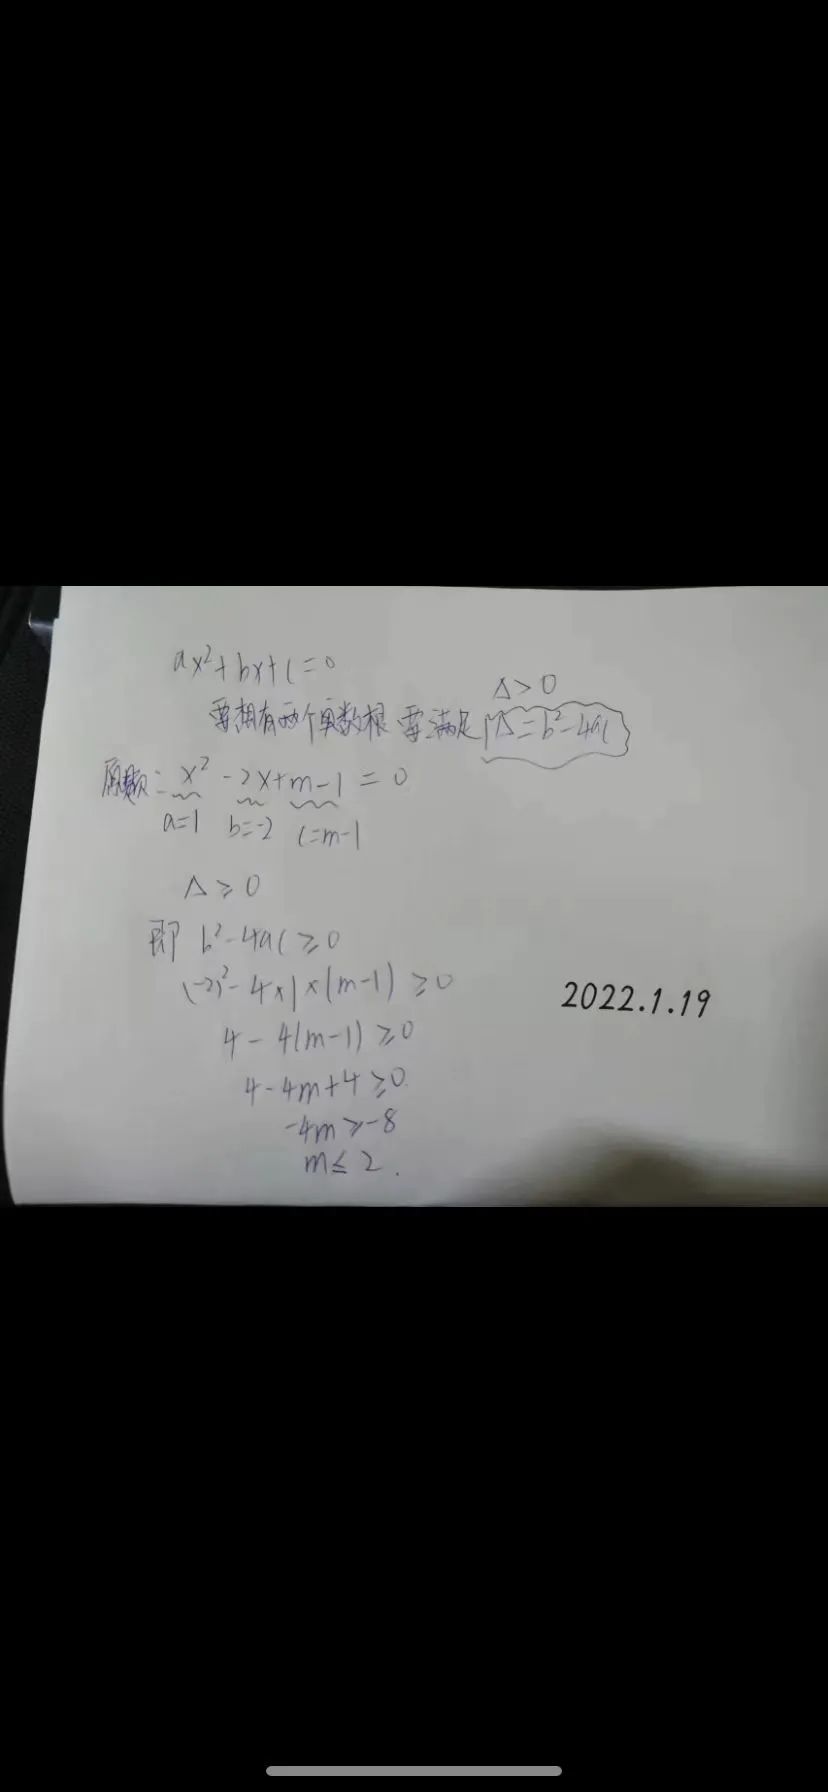 ax²+bx+c=0
Δ>0
要想有两个实数根 需满足 Δ=b²-4ac
原题: x²-2x+m-1=0
a=1 b=-2 c=m-1
Δ≥0
即 b²-4ac≥0
(-2)²-4×1×(m-1)≥0
4-4(m-1)≥0
4-4m+4≥0
-4m≥-8
m≤2.
2022.1.19